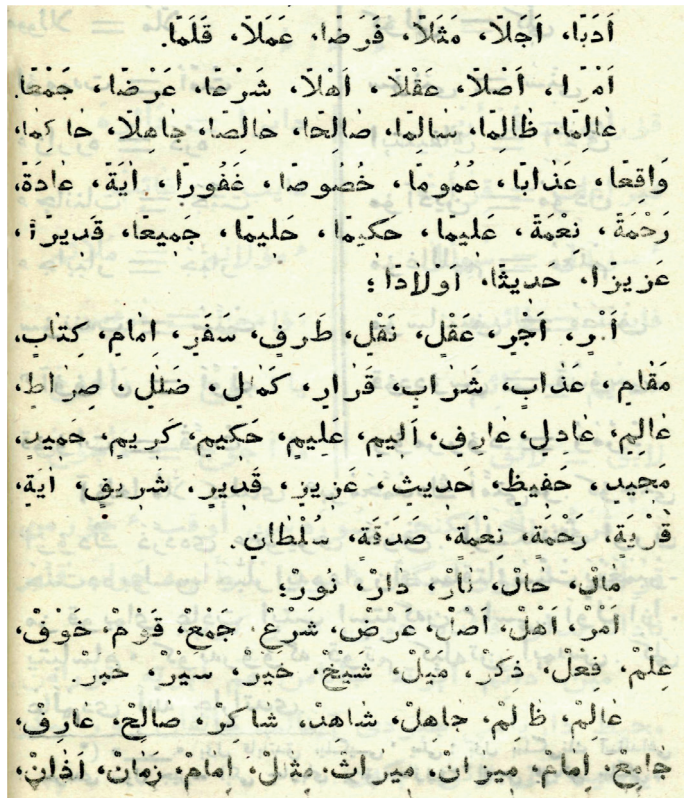 اَدَبًا، اَجَلًا، مَثَلًا، فَرَضًا، عَمَلًا، قَلَمًا.
اَمْرًا، اَصْلًا، عَقْلًا، اَهْلًا، شَرْعًا، عَرْضًا، جَمْعًا.
عَالِمًا، ظَالِمًا، سَالِمًا، صَالِحًا، خَالِصًا، جَاهِلًا، حَاكِمًا،
وَاقِعًا، عَذَابًا، عُمُومًا، خُصُوصًا، غَفُورًا، اٰيَةً، عَادَةً،
رَحْمَةً، نِعْمَةً، عَلِيمًا، حَكِيمًا، حَلِيمًا، جَمِيعًا، قَدِيرًا،
عَزِيزًا، حَدِيثًا، اَوْلَادًا؛
اَمْرٍ، اَجْرٍ، عَقْلٍ، نَقْلٍ، طَرَفٍ، سَفَرٍ، اِمَامٍ، كِتَابٍ،
مَقَامٍ، عَذَابٍ، شَرَابٍ، قَرَارٍ، كَمَالٍ، ضَلَلٍ، صِرَاطٍ،
عَالِمٍ، عَادِلٍ، عَارِفٍ، اَلِيمٍ، عَلِيمٍ، حَكِيمٍ، كَرِيمٍ، حَمِيدٍ،
مَجِيدٍ، حَفِيظٍ، حَدِيثٍ، عَزِيزٍ، قَدِيرٍ، شَرِيفٍ، اٰيَةٍ،
قَرْيَةٍ، رَحْمَةٍ، نِعْمَةٍ، صَدَقَةٍ، سُلْطَانٍ.
مَالْ، حَالْ، نَارْ، دَارْ، نُورْ؛
اَمْرْ، اَهْلْ، اَصْلْ، عَرْضْ، شَرْعْ، جَمْعْ، قَوْمْ، خَوْفْ،
عِلْمْ، فِعْلْ، ذِكْرْ، مَيْلْ، شَيْخْ، خَيْرْ، سَيْرْ، خَبَرْ.
عَالِمْ، ظَالِمْ، جَاهِلْ، شَاهِدْ، شَاكِرْ، صَالِحْ، عَارِفْ،
جَامِعْ، اِمَامْ، مِيزَانْ، مِيرَاثْ، مِثَالْ، اِمَامْ، زَمَانْ، اَذَانْ،